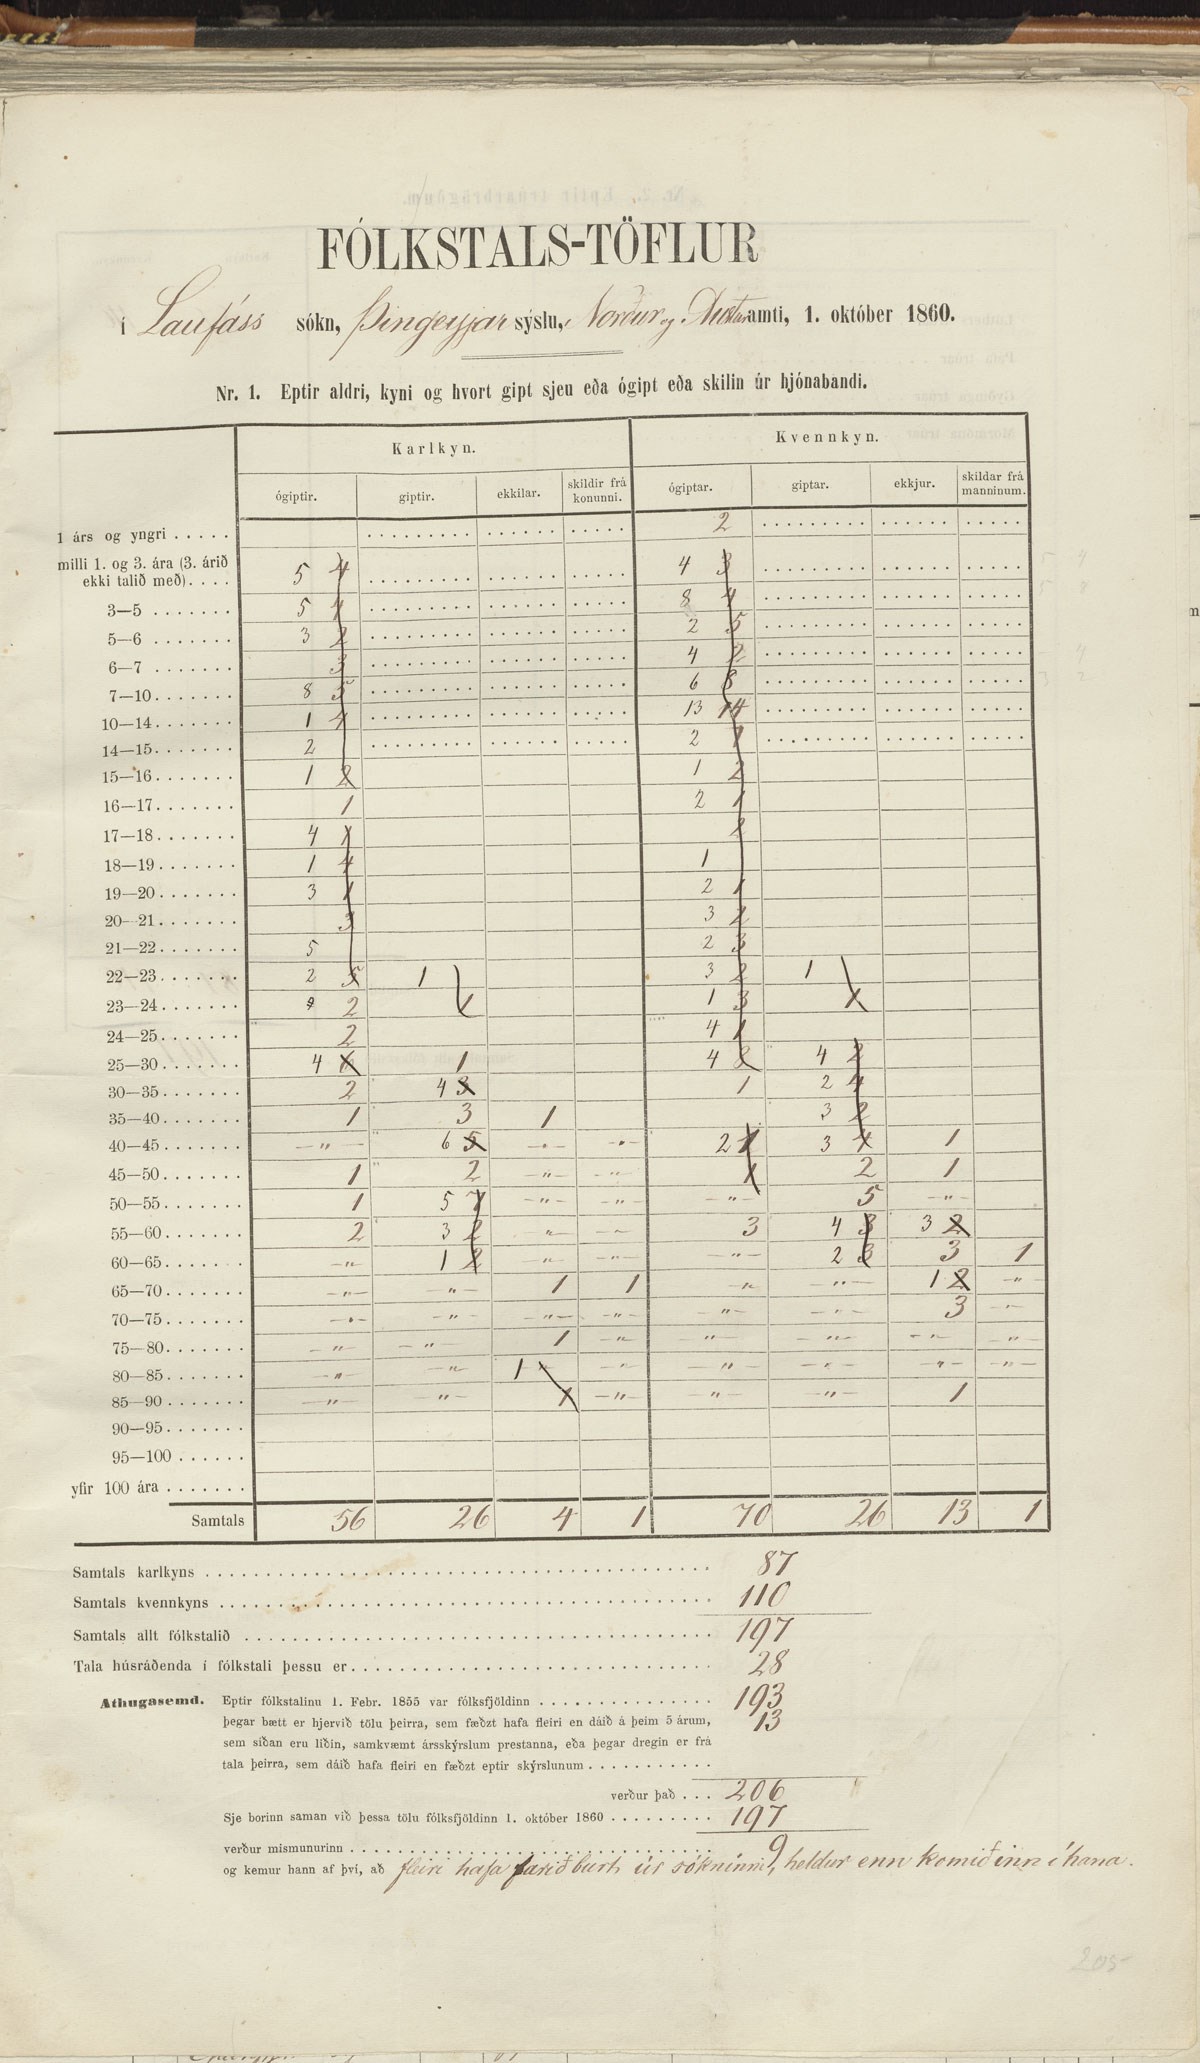 FÓLKSTALS-TÖFLUR
í Laufáss sókn, Þingeyjar sýslu, Norður og Austuramti, 1. október 1860.
Nr. 1. Eptir aldri, kyni og hvort gipt sjeu eða ógipt eða skilin úr hjónabandi.
Karlkyn. Kvennkyn.
ógiptir. giptir. ekkilar. skildir frá konunni. ógiptar. giptar. ekkjur. skildar frá manninum.
1 árs og yngri . . . . . 2
milli 1. og 3. ára (3. árið
ekki talið með). . . . 5 4 4 3
3—5 . . . . . . . 5 4 8 4
5—6 . . . . . . . 3 2 2 5
6—7 . . . . . . . 3 4 2
7—10. . . . . . . 8 5 6 8
10—14. . . . . . . 1 4 13 14
14—15. . . . . . . 2 2 1
15—16. . . . . . . 1 2 1 2
16—17. . . . . . . 1 2 1
17—18. . . . . . . 4 1 2
18—19. . . . . . . 1 4 1
19—20. . . . . . . 3 1 2 1
20—21. . . . . . . 3 3 2
21—22. . . . . . . 5 2 3
22—23. . . . . . . 2 5 1 3 2 1
23—24. . . . . . . 2 1 1 3 1
24—25. . . . . . . 2 4 1
25—30. . . . . . . 4 1 4 2 4 2
30—35. . . . . . . 2 4 3 1 2 4
35—40. . . . . . . 1 3 1 3 2
40—45. . . . . . . —"— 6 5 —"— —"— 2 1 3 4 1
45—50. . . . . . . 1 2 —"— —"— 1 2 1
50—55. . . . . . . 1 5 7 —"— —"— —"— 5 —"—
55—60. . . . . . . 2 3 2 —"— —"— 3 4 3 3 2
60—65. . . . . . . —"— 1 2 —"— —"— —"— 2 3 3 1
65—70. . . . . . . —"— —"— 1 1 —"— —"— 1 2 —"—
70—75. . . . . . . —"— —"— —"— —"— —"— —"— 3 —"—
75—80. . . . . . . —"— —"— 1 —"— —"— —"— —"— —"—
80—85. . . . . . . —"— —"— 1 —"— —"— —"— —"— —"—
85—90. . . . . . . —"— —"— 1 —"— —"— —"— 1
90—95. . . . . . .
95—100 . . . . . .
yfir 100 ára . . . . . . .
Samtals 56 26 4 1 70 26 13 1
Samtals karlkyns . . . . . 87
Samtals kvennkyns . . . . . 110
Samtals allt fólkstalið . . . . . 197
Tala húsráðenda í fólkstali þessu er. . . . . 28
Athugasemd. Eptir fólkstalinu 1. Febr. 1855 var fólksfjöldinn . . . . . 193
þegar bætt er hjervið tölu þeirra, sem fæðzt hafa fleiri en dáið á þeim 5 árum, 13
sem síðan eru liðin, samkvæmt ársskýrslum prestanna, eða þegar dregin er frá
tala þeirra, sem dáið hafa fleiri en fæðzt eptir skýrslunum . . . . .
verður það . . . 206
Sje borinn saman við þessa tölu fólksfjöldinn 1. október 1860 . . . . . 197
verður mismunurinn . . . . . 9
og kemur hann af því, að fleiri hafa farið burt úr sókninni, heldur enn komið inn í hana.
205